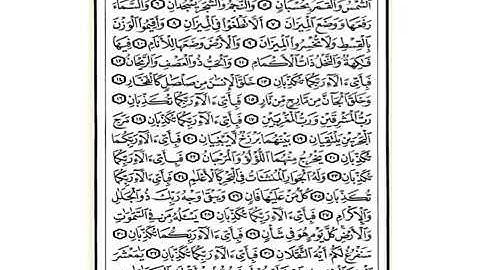 ٱلشَّمْسُ وَٱلْقَمَرُ بِحُسْبَانٍ ٥ وَٱلنَّجْمُ وَٱلشَّجَرُ يَسْجُدَانِ ٦ وَٱلسَّمَآءَ
رَفَعَهَا وَوَضَعَ ٱلْمِيزَانَ ٧ أَلَّا تَطْغَوْا۟ فِى ٱلْمِيزَانِ ٨ وَأَقِيمُوا۟ ٱلْوَزْنَ
بِٱلْقِسْطِ وَلَا تُخْسِرُوا۟ ٱلْمِيزَانَ ٩ وَٱلْأَرْضَ وَضَعَهَا لِلْأَنَامِ ١٠ فِيهَا
فَٰكِهَةٌ وَٱلنَّخْلُ ذَاتُ ٱلْأَكْمَامِ ١١ وَٱلْحَبُّ ذُو ٱلْعَصْفِ وَٱلرَّيْحَانُ ١٢
فَبِأَىِّ ءَالَآءِ رَبِّكُمَا تُكَذِّبَانِ ١٣ خَلَقَ ٱلْإِنسَٰنَ مِن صَلْصَٰلٍ كَٱلْفَخَّارِ ١٤
وَخَلَقَ ٱلْجَآنَّ مِن مَّارِجٍ مِّن نَّارٍ ١٥ فَبِأَىِّ ءَالَآءِ رَبِّكُمَا تُكَذِّبَانِ ١٦
رَبُّ ٱلْمَشْرِقَيْنِ وَرَبُّ ٱلْمَغْرِبَيْنِ ١٧ فَبِأَىِّ ءَالَآءِ رَبِّكُمَا تُكَذِّبَانِ ١٨ مَرَجَ
ٱلْبَحْرَيْنِ يَلْتَقِيَانِ ١٩ بَيْنَهُمَا بَرْزَخٌ لَّا يَبْغِيَانِ ٢٠ فَبِأَىِّ ءَالَآءِ رَبِّكُمَا
تُكَذِّبَانِ ٢١ يَخْرُجُ مِنْهُمَا ٱللُّؤْلُؤُ وَٱلْمَرْجَانُ ٢٢ فَبِأَىِّ ءَالَآءِ رَبِّكُمَا
تُكَذِّبَانِ ٢٣ وَلَهُ ٱلْجَوَارِ ٱلْمُنشَـَٔاتُ فِى ٱلْبَحْرِ كَٱلْأَعْلَٰمِ ٢٤ فَبِأَىِّ ءَالَآءِ رَبِّكُمَا
تُكَذِّبَانِ ٢٥ كُلُّ مَنْ عَلَيْهَا فَانٍ ٢٦ وَيَبْقَىٰ وَجْهُ رَبِّكَ ذُو ٱلْجَلَٰلِ
وَٱلْإِكْرَامِ ٢٧ فَبِأَىِّ ءَالَآءِ رَبِّكُمَا تُكَذِّبَانِ ٢٨ يَسْـَٔلُهُۥ مَن فِى ٱلسَّمَٰوَٰتِ
وَٱلْأَرْضِ كُلَّ يَوْمٍ هُوَ فِى شَأْنٍ ٢٩ فَبِأَىِّ ءَالَآءِ رَبِّكُمَا تُكَذِّبَانِ ٣٠
سَنَفْرُغُ لَكُمْ أَيُّهَ ٱلثَّقَلَانِ ٣١ فَبِأَىِّ ءَالَآءِ رَبِّكُمَا تُكَذِّبَانِ ٣٢ يَٰمَعْشَرَ